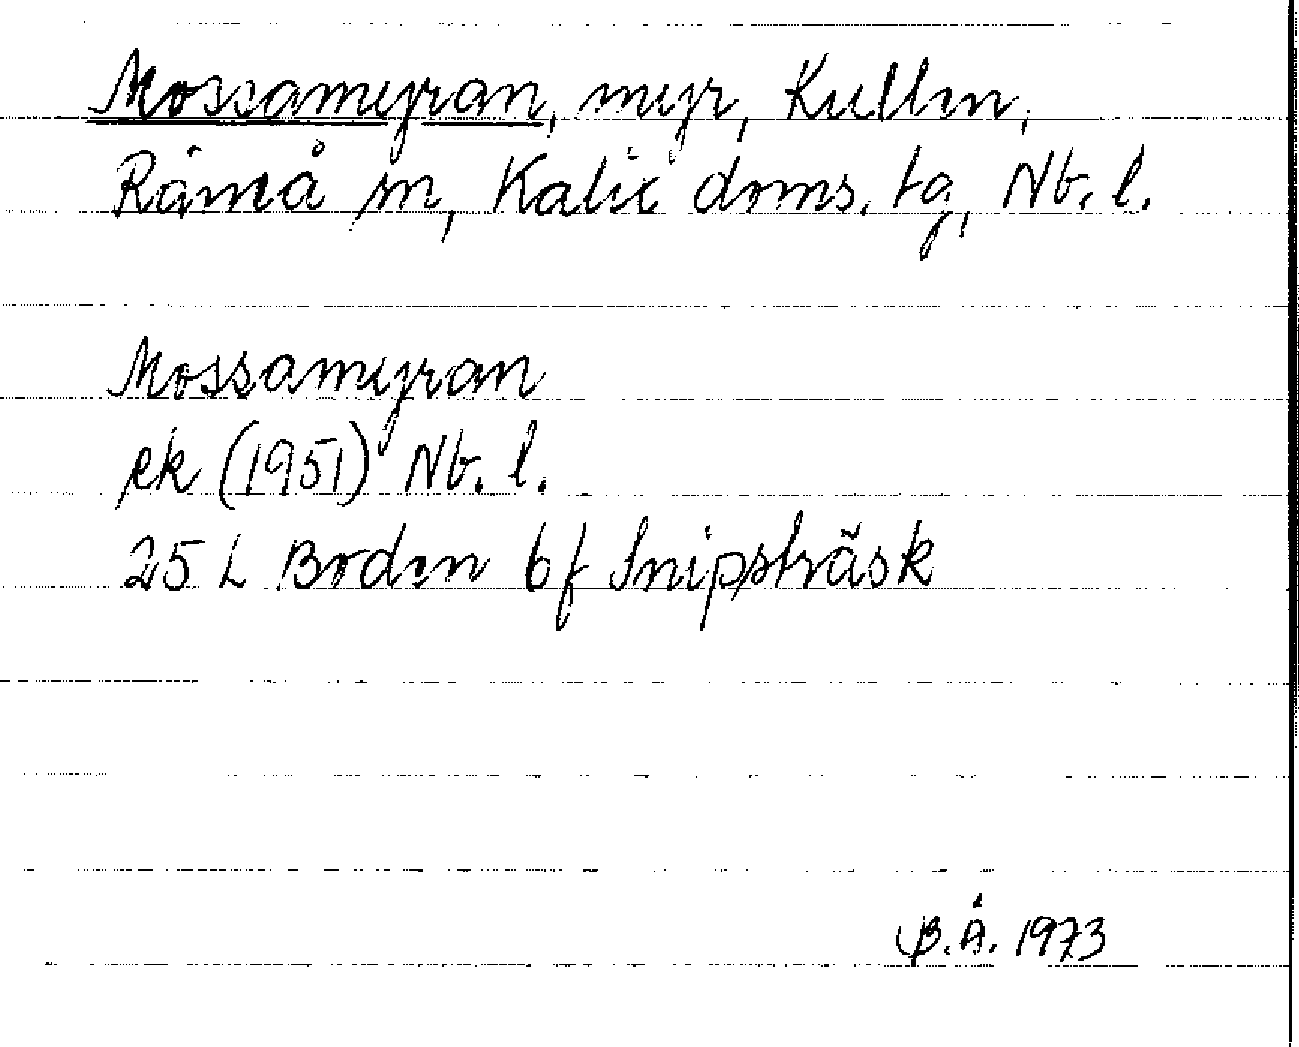 Mossamyran, myr, Kullen,
Råneå sn, Kalix doms. tg, Nb. l.
Mossamyran
ek (1951) Nb. l.
25 L Boden bf Snippträsk
B.Å. 1973